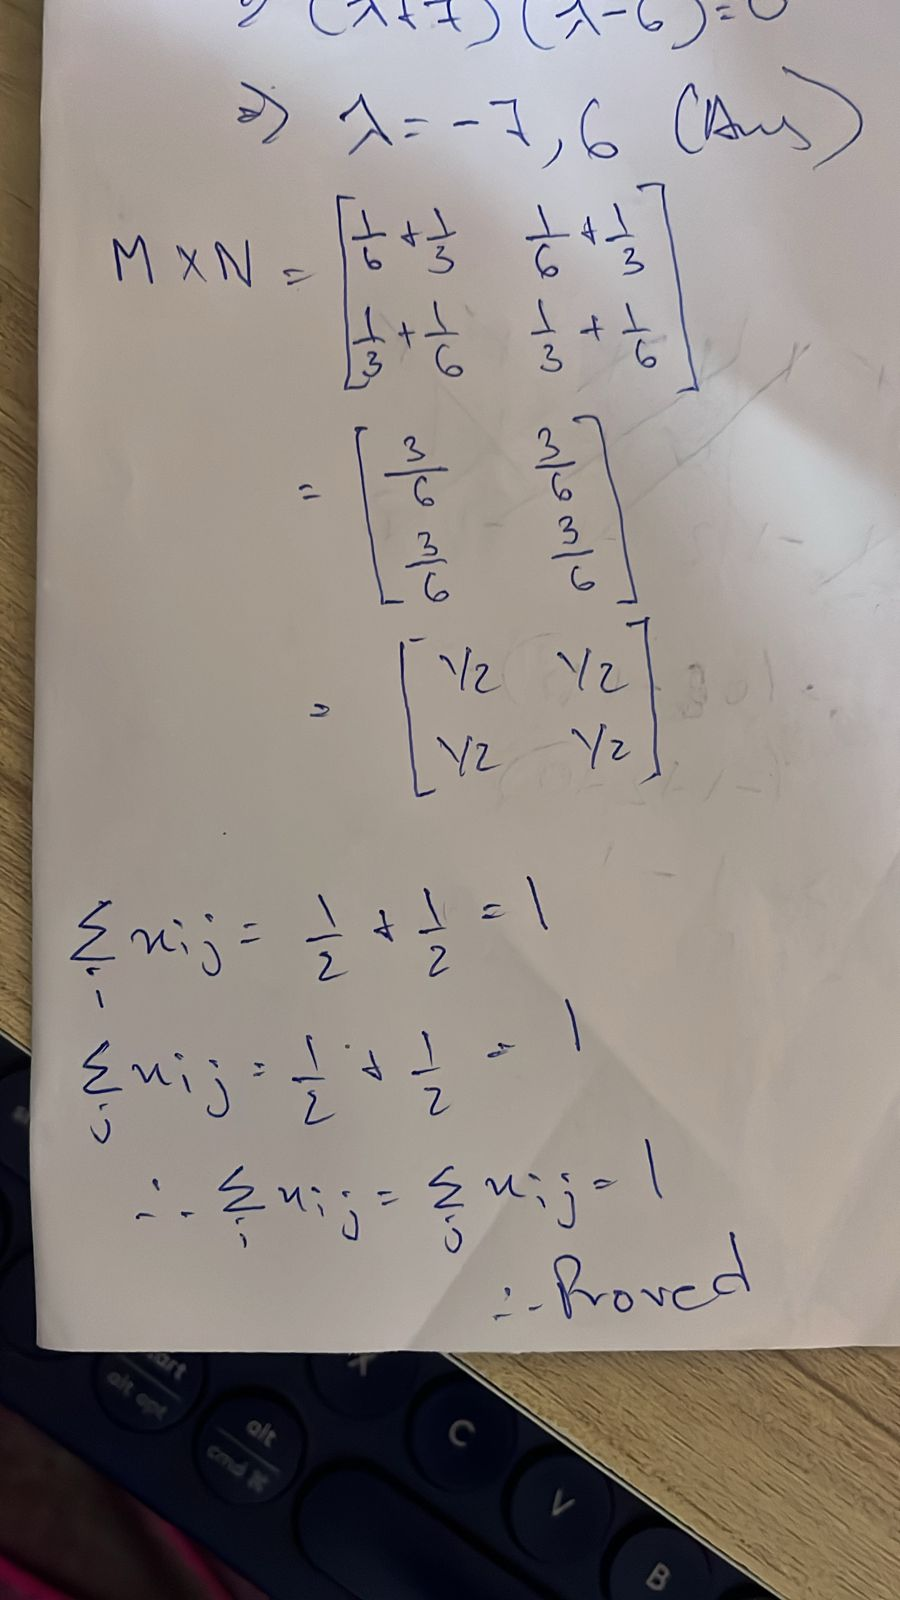 ⇒ (λ+7)(λ-6)=0
⇒ λ=-7,6 (Ans)
M×N = [1/6+1/3 1/6+1/3
1/3+1/6 1/3+1/6]
= [3/6 3/6
3/6 3/6]
= [1/2 1/2
1/2 1/2]
Σᵢ xij = 1/2 + 1/2 = 1
Σⱼ xij = 1/2 + 1/2 = 1
∴ Σᵢ xij = Σⱼ xij = 1
∴ Proved
alt opt
alt
cmd ⌘
X
C
V
B